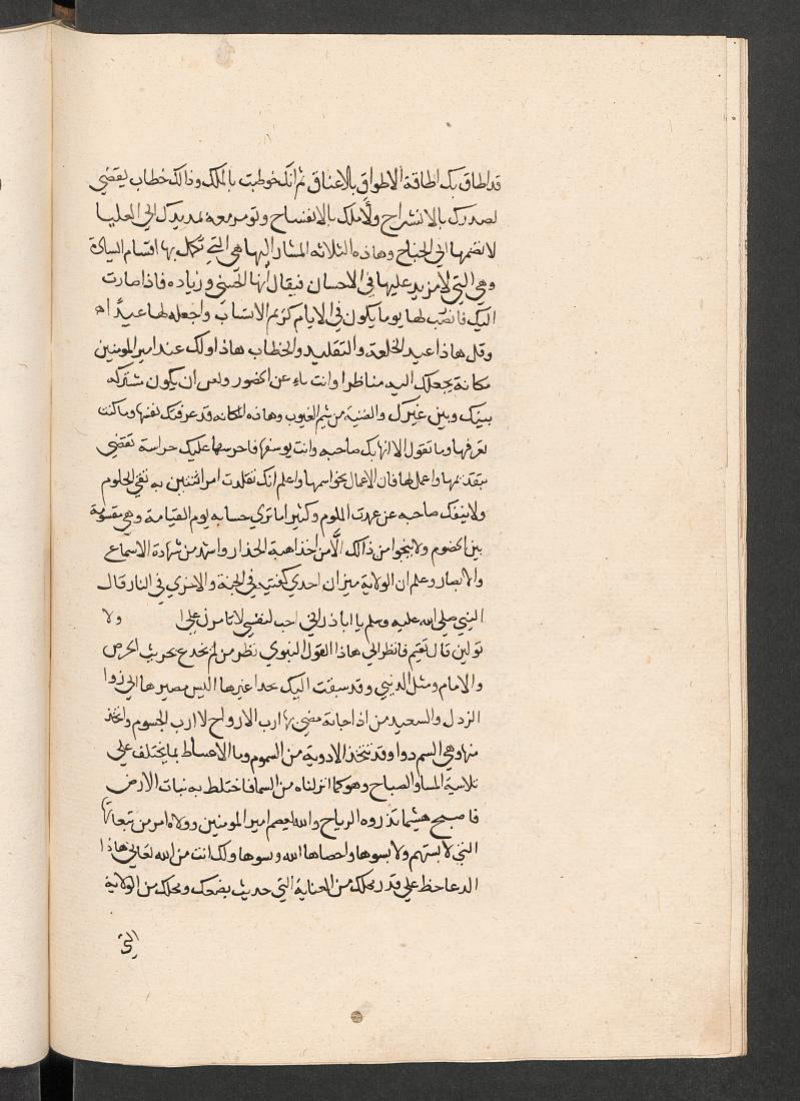 قد اطاق بك اطاقة الاطواق بالاعناق ثم انك خوطبت بالملك وذالك خطاب يقضي
لصدرك بالانشراح ولاملك بالانفساح وتومر معه بمد يدك الي العليا
لا بضمها الي الجناح وهاذه الثلاثه المشار اليها هي التي تكمل بها اقسام السيادة
وهي التي لا مزيد عليها في الاحسان فيقال انها الحسني وزياده فاذا صارت
اليك فانصب لها يوما يكون في الايام كريم الانساب واجعله لها عيدا
وقل هاذا عيد الخلعة والتقليد والخطاب هاذا ولك عند امير المومنين
مكانة تجعلك اليه مناظرا وانت ناء عن الحضور وتضن ان يكون مشتركه
بينك وبين غيرك والضنية من شيم الغيور وهاذه المكانه قد عرفتك نفسها وما كنت
تعرفها وما نقول الا انها بك صاحبه وانت يوسفها فاحرسها عليك حراسة تقتضي
بتقديمها واعمل لها فان الاعمال بخواتمها واعلم انك تقلدت امرا تفتن به تقي الحلوم
ولا ينفك صاحبه عن عهدت الملوم وكثيرا ما تري حسابه يوم القيامة وهي مقسومة
بين الخصوم ولا ينجوا من ذالك الا من اخذ اهبة الحذار واشفق من شهادة الاسماع
والابصار وعلم ان الولاية ميزان احدي كفتيه في الجنة والاخري في النار قال
النبي صلي الله عليه وسلم يا اباذر اني احب لنفسي لا تامرن علي ا ولا
تولين قال تقيم فانظر الي هاذا القول النبوي نظر من لم يخدع بحديث الحرص
والامام ومثل الدنيي وقد سيقت اليك بحذا غيرها اليس مصيرها الي زوا
الزدل والسعيد من اذا جاته مضي بها ارب الارواح لا ارب الجسوم واتخذ
منها وهي السم دوا وقد تتخذ الادوية من السموم وما الاغتباط بما يختلف علي
تلاسية المسا والصباح وهو كما انزلناه من السما فاختلط به نبات الارض
فاصبح هشيما تذروه الرياح والله يعصم امير المومنين وولاة امره من تبعاتها
التي لابستهم ولابسوها واحصاها الله ونسوها ولك انت من الله تعالي هاذا
الدعا حظ علي قدر محلك من العناية التي حديث بضعك ومحلك من الولاية
التي